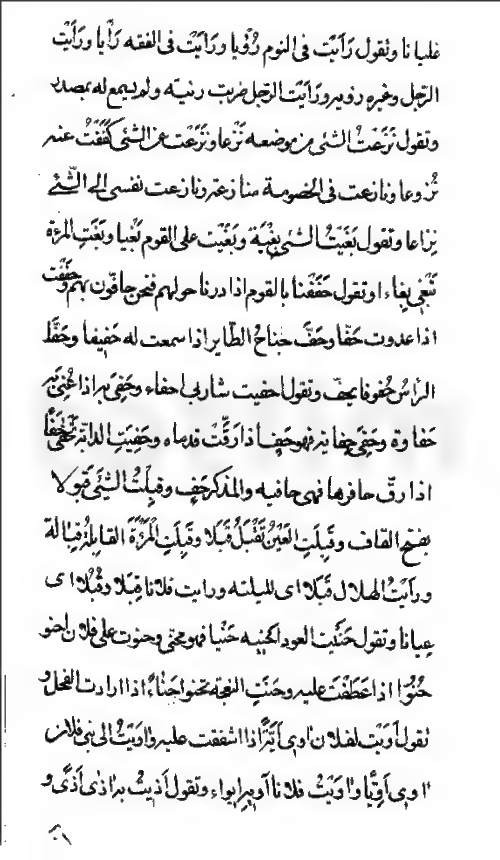 غليانا وتقول رَأَيْت فى النوم رُؤيا ورَأيَتْ فى الفقه رَأْيا ورَأَيْت
الرّجل وغيره رؤية ورَأيَت الرّجل ضربت رئته ولم يسمع له بمصدر
وتقول نَزَعْتُ الشئ من موضعه نَزْعا ونَزَعْت عن الشّئ كَفَفْتُ عنه
نُزوعا ونازعت فى الخصومة منازعة ونازعت نفسى الى الشّئ
نِزاعا وتقول بَغَيْتُ الشّئ بِغْيَة وبَغَيْت على القوم بَغْيا وبَغَتِ المرءة
تَبْغى بِغاء وتقول حَفَفْنا بالقوم اذا درنا حولهم فنحن حافّون بهم وحَفَفْت
اذا عدوت حَفّا وحَفَّ جناحُ الطّاير اذا سمعت له حَفِيفا وحَفَّ
الرّاسُ حُفوفا يحفّ وتقول احفيت شاربى احفاء وحَفِىَ به اذا عُنِىَ به
حَفاوة وحَفِىَ حِفاية فهو حَفٍ اذا رَقَّتْ قدماه وحَفِيَتِ الدابة تَحْفَى حَفًا
اذا رقّ حافرها فهى حافيه والمذكر حَفٍ وقبِلَتُ الشّئَ قَبولا
بفتح القاف وقَبِلَتِ العَيْنُ تَقْبَلُ قَبَلا وقَبِلَتِ المْرَءَةَ القابلةُ قِبالة
ورَأيْتُ الهلال قَبَلا اى لليلته ورايت فلانا قِبَلا وقُبُلا اى
عِيانا وتقول حَنَيْت العود احنيه حَنْيا فهو محنى وحنوت على فلان احنو
حُنُوًّا اذا عَطَفْتَ عليه وحَنَتِ النعجة تحنوا حِناءً اذا ارادت الفحل و
تقول أوَيْت لفلان اوى أيَةً اذا اشفقت عليه واوَيْتُ الى بنى فلان
اوى أوِيًّا واوَيْتُ فلانا آويه ايواء وتقول أذيتُ به اذى أذًى و